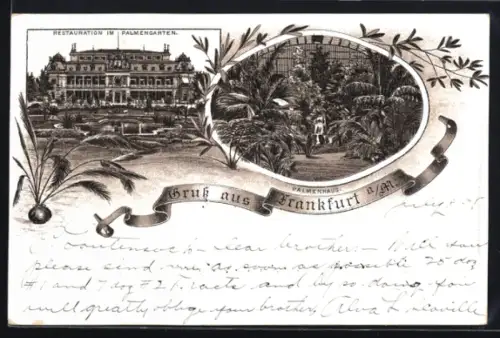 RESTAURATION IM PALMENGARTEN.
PALMENHAUS.
Gruß aus Frankfurt a/M.
dear brother - Will you
please send me as soon as possible 20 doz
#1 and 7 doz #2 and by so doing you
will greatly oblige your brother Alva